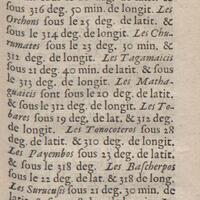 sous 316 deg. 50 min. de longit. Les
Orchons sous le 25 deg. de latit. &
sous le 314 deg. de longit. Les Chu-
rumates sous le 23 deg. 30 min, &
312 deg. de longit. Les Tagamaicis
sous 21 deg. 40 min. de latit. & sous
le 313 deg. de longit. Les Matha-
guaicis sont sous le 20 deg. de latit,
& sous le 312 deg. de longit. Les To-
bares sous 19 deg. de lat, & 312 deg.
de longit. Les Tonocoteros sous 28
deg. de latit. & 310 deg. de longit.
Les Payembos sous 23 deg. de latit.
& sous le 318 deg. Les Bascherpos
sous le 22 deg. de lat. & 318 de long.
Les Surucusis sous 21 deg. 30 min. de